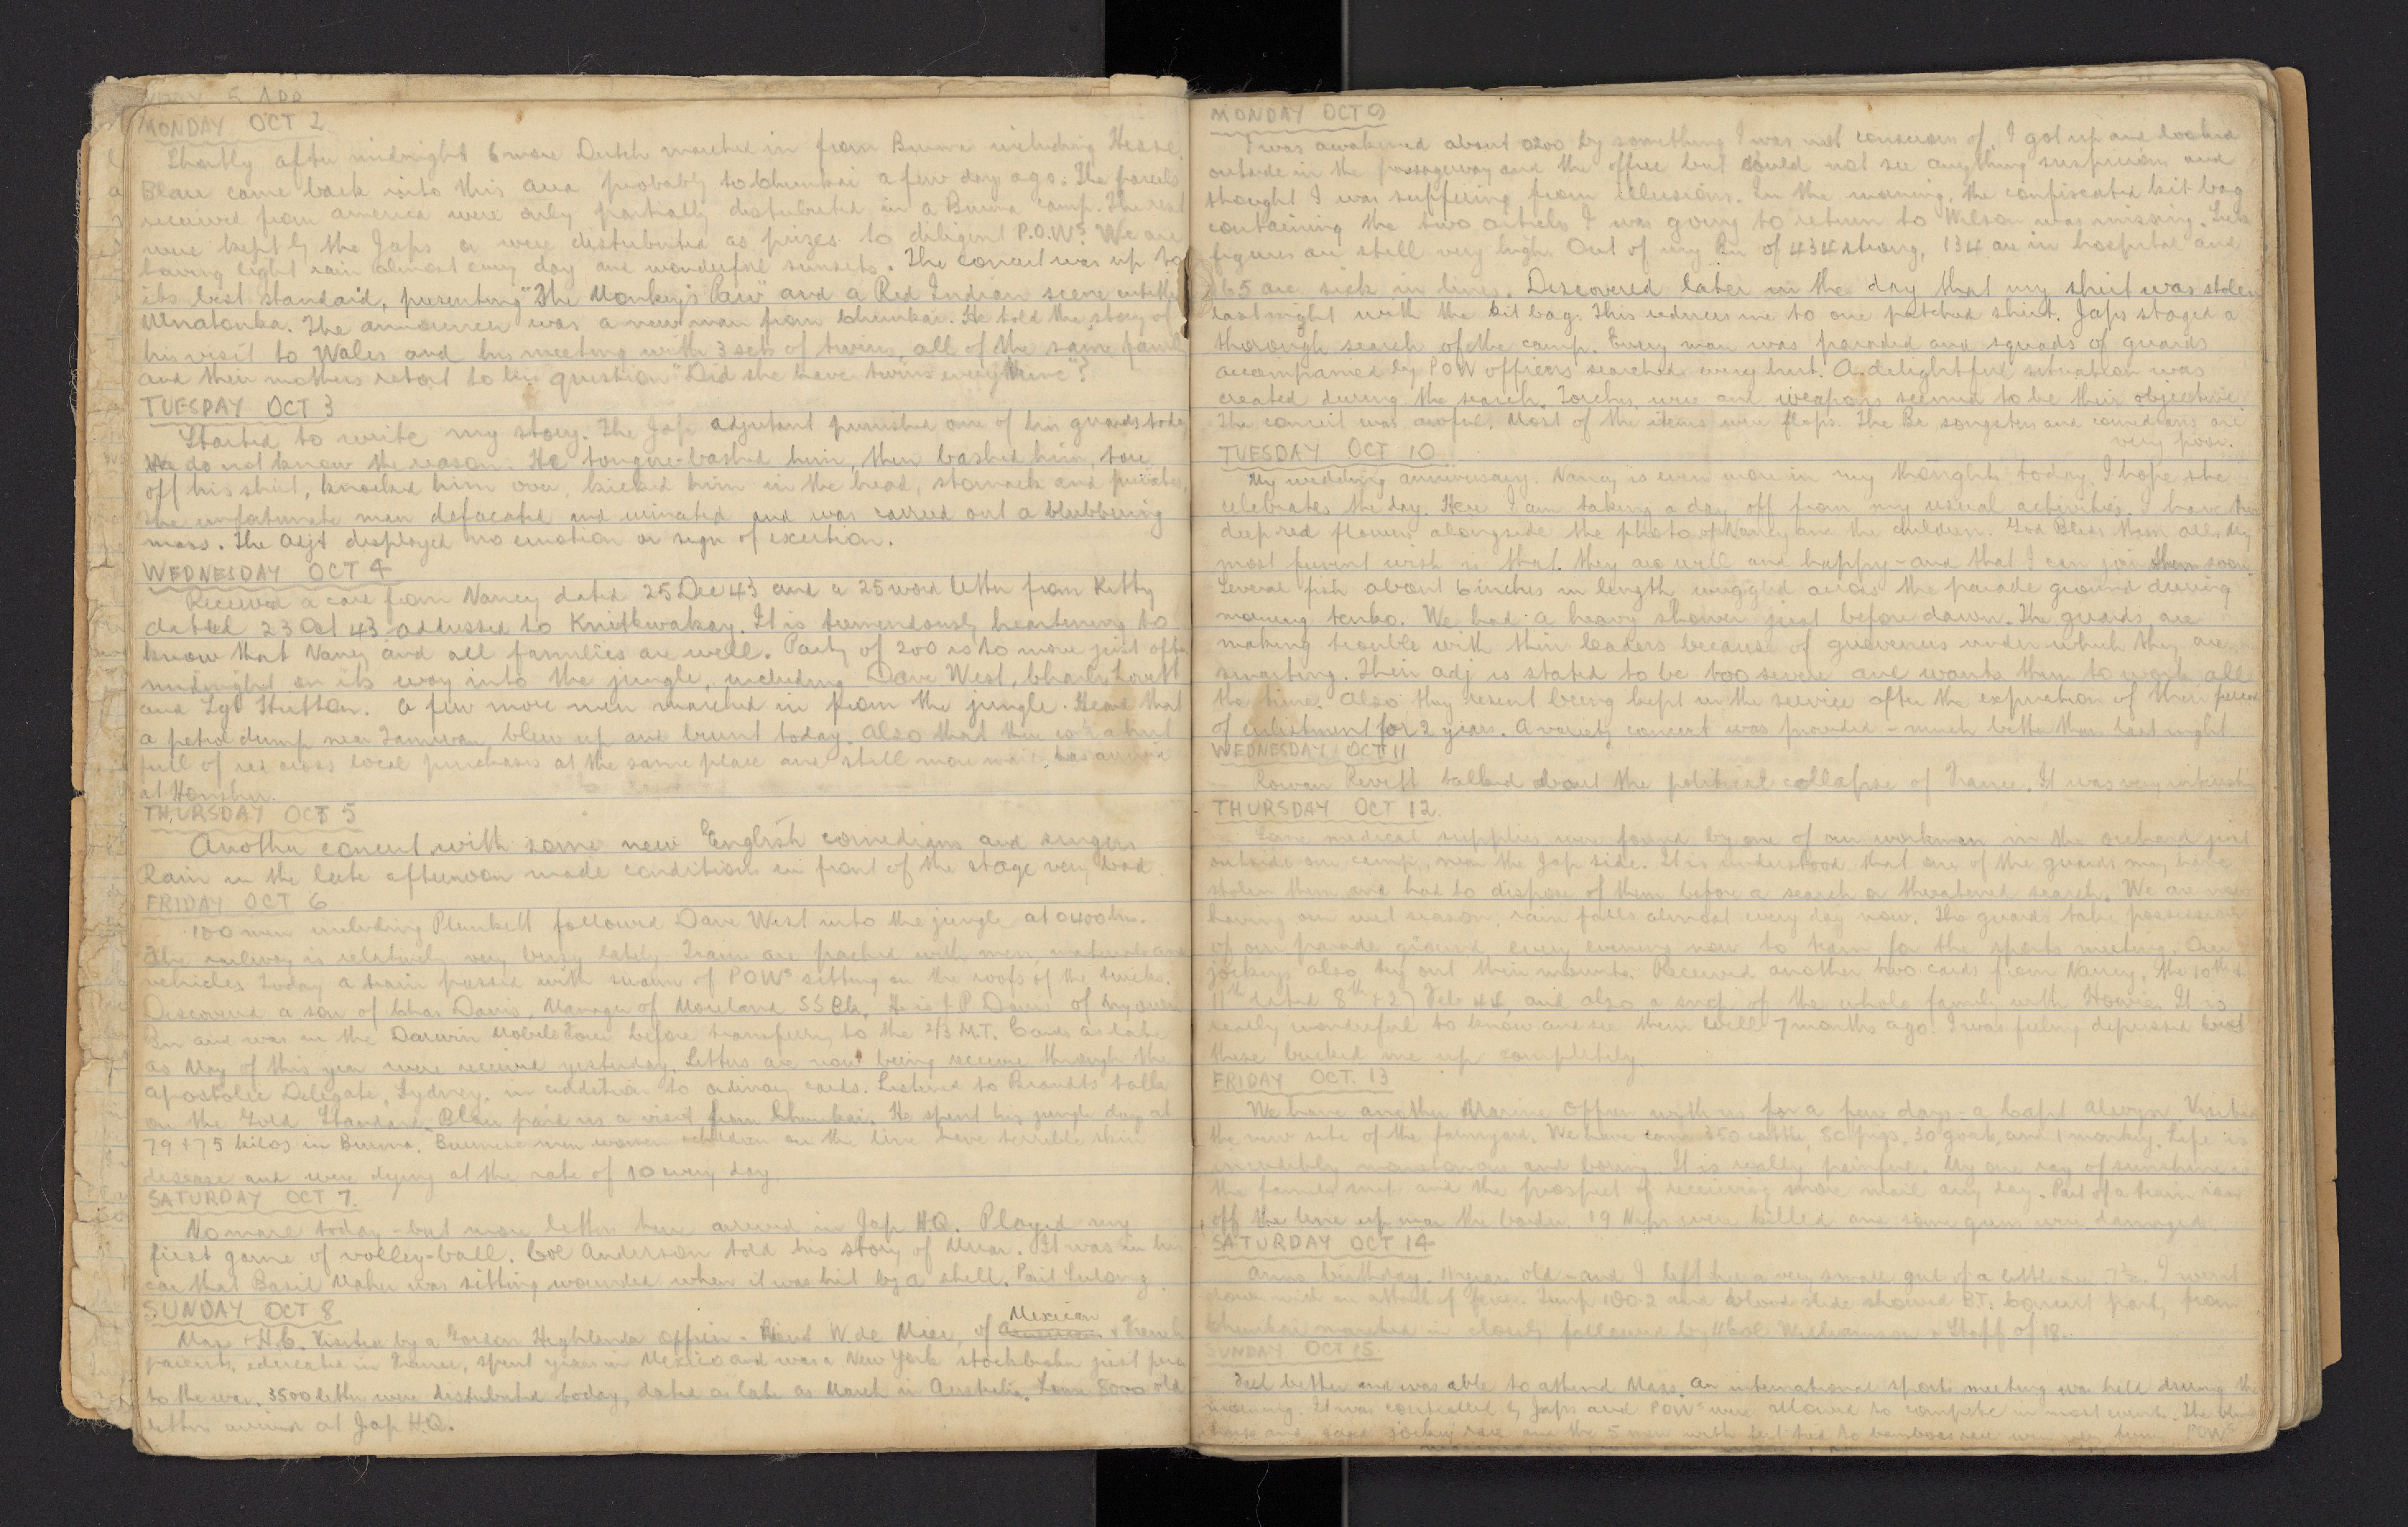 MONDAY OCT 2
Shortly after midnight 6 more Dutch marched in from Burma including Hesse.
Blau came back into this area probably to Chunkai a few days ago. The parcels
received from America were only partially distributed in a Burma camp. The rest
were kept by the Japs or were distributed as prizes to diligent P.O.Ws. We are
having light rain almost every day and wonderful sunsets. The concert was up to
its best standard, presenting "The Monkey's Paw" and a Red Indian scene entitled
Wnatonka. The announcer was a new man from Chunkai. He told the story of
his visit to Wales and his meeting with 3 sets of twins, all of the same family
and their mothers retort to his question "Did she have twins every time"?
TUESDAY OCT 3
Started to write my story. The Jap adjutant punished one of his guards today
We do not know the reason. He tongue-bashed him, then bashed him, tore
off his shirt, knocked him over, kicked him in the head, stomach and privates,
The unfortunate man defacated and urinated and was carried out a blubbering
mass. The Adjt displayed no emotion or sign of exertion.
WEDNESDAY OCT 4
Received a card from Nancy dated 25 Dec 43 and a 25 word letter from Kitty
dated 23 Oct 43 addressed to Knitkwakay. It is tremendously heartening to
know that Nancy and all families are well. Party of 200 is to move just after
midnight on its way into the jungle, including Dave West, Charly Lovett
and Sgt Hutton. A few more men marched in from the jungle. Heard that
a petrol dump near Tamuan blew up and burnt today. Also that there is a hut
full of red cross local purchases at the same place and still more mail has arrived
at Honshu.
THURSDAY OCT 5
Another concert with some new English comedians and singers
Rain in the late afternoon made conditions in front of the stage very bad.
FRIDAY OCT 6
100 men including Plunkett followed Dave West into the jungle at 0400 hrs.
The railway is relatively very busy lately. Trains are packed with men, materials and
vehicles. Today a train passed with swarm of POWs sitting on the roofs of the trucks.
Discovered a son of Chas Davis, Manager of Moreland SS Bk. He is J P Davis of my own
Bn and was in the Darwin Mobile Force before transferring to the 2/3 M.T. Cards as late
as May of this year were received yesterday. Letters are now being received through the
Apostolic Delegate, Sydney, in addition to ordinary cards. Listened to Parandts talk
on the Gold Standard. Blau paid us a visit from Chunkai. He spent his jungle days at
79 + 75 kilos in Burma. Burmese men women children on the line have terrible skin
disease and were dying at the rate of 10 every day.
SATURDAY OCT 7.
No mail today - but more letters have arrived in Jap HQ. Played my
first game of volley-ball. Col Anderson told his story of Muar. It was in his
car that Basil Maher was sitting wounded when it was hit by a shell. Parit Sulong
SUNDAY OCT 8
Mass + H.C. Visited by a Gordon Highlanders officer - Lieut W. de Mier, of Mexican + French
parents, educated in France, spent years in Mexico and was a New York stockbroker just prior
to the war. 3500 letters were distributed today, dated as late as March in Australia. Some 8000 old
letters arrived at Jap H.Q.
MONDAY OCT 9
I was awakened about 0200 by something I was not conscious of. I got up and looked
outside in the passageway and the office but could not see anything suspicious and
thought I was suffering from illusions. In the morning, the confiscated kit bag
containing the two articles I was going to return to Wilson was missing. Sick
figures are still very high. Out of my Bn of 434 strong, 134 are in hospital and
65 are sick in lines. Discovered later in the day that my shirt was stolen
last night with the kit bag. This reduces me to one patched shirt. Japs staged a
thorough search of the camp. Every man was paraded and squads of guards
accompanied by POW officers searched every hut. A delightful situation was
created during the search. Torches, wire and weapons seemed to be their objective
The concert was awful. Most of the items were flops. The Br songsters and comedians are
very poor.
TUESDAY OCT 10
My wedding anniversary. Nancy is even more in my thoughts today. I hope she
celebrates the day. Here I am taking a day off from my usual activities. I have two
deep red flowers alongside the photo of Nancy and the children. God Bless them all. My
most fervent wish is that they are well and happy - and that I can join them soon.
Several fish about 6 inches in length wriggled across the parade ground during
morning tenko. We had a heavy shower just before dawn. The guards are
making trouble with their leaders because of grievences under which they are
smarting. Their adj is stated to be too severe and wants them to work all
the time. Also they resent being kept in the service after the expiration of their period
of enlistment for 2 years. A variety concert was provided - much better than last night
WEDNESDAY OCT 11
Rowan Revett talked about the political collapse of France. It was very interesting
THURSDAY OCT 12.
Some medical supplies were found by one of our workmen in the orchard just
outside our camp, near the Jap side. It is understood that one of the guards may have
stolen them and had to dispose of them before a search or threatened search. We are now
having our wet season, rain falls almost every day now. The guards take possession
of our parade ground every evening now to train for the sports meeting. Our
jockeys also try out their mounts. Received another two cards from Nancy, the 10th &
11th dated 8th + 27 Feb 44, and also a snap of the whole family with Howie. It is
really wonderful to know and see them well 7 months ago. I was feeling depressed but
these bucked me up completely.
FRIDAY OCT. 13
We have another Marine Officer with us for a few days - a Capt Alwyn. Visited
the new site of the farmyard. We have some 350 cattle, 80 pigs, 30 goats, and 1 monkey. Life is
incredibly monotonous and boring. It is really painful. My one ray of sunshine is
the family snap and the prospect of receiving more mail any day. Part of a train ran
off the line up near the border. 19 Nips were killed and some guns were damaged.
SATURDAY OCT 14
birthday. 11 years old - and I left her a very small girl of a little over 7½. I went
down with an attack of fever. Temp 100.2 and blood slide showed BT. Concert party from
Chunkai marched in closely followed by Col Williamson + staff of 18.
SUNDAY OCT 15.
Feel better and was able to attend Mass. An international sports meeting was held during the
morning. It was controlled by Japs and POWs were allowed to compete in most events. The
jockey race and the 5 men with feet tied to bamboos race were very funny. POWs